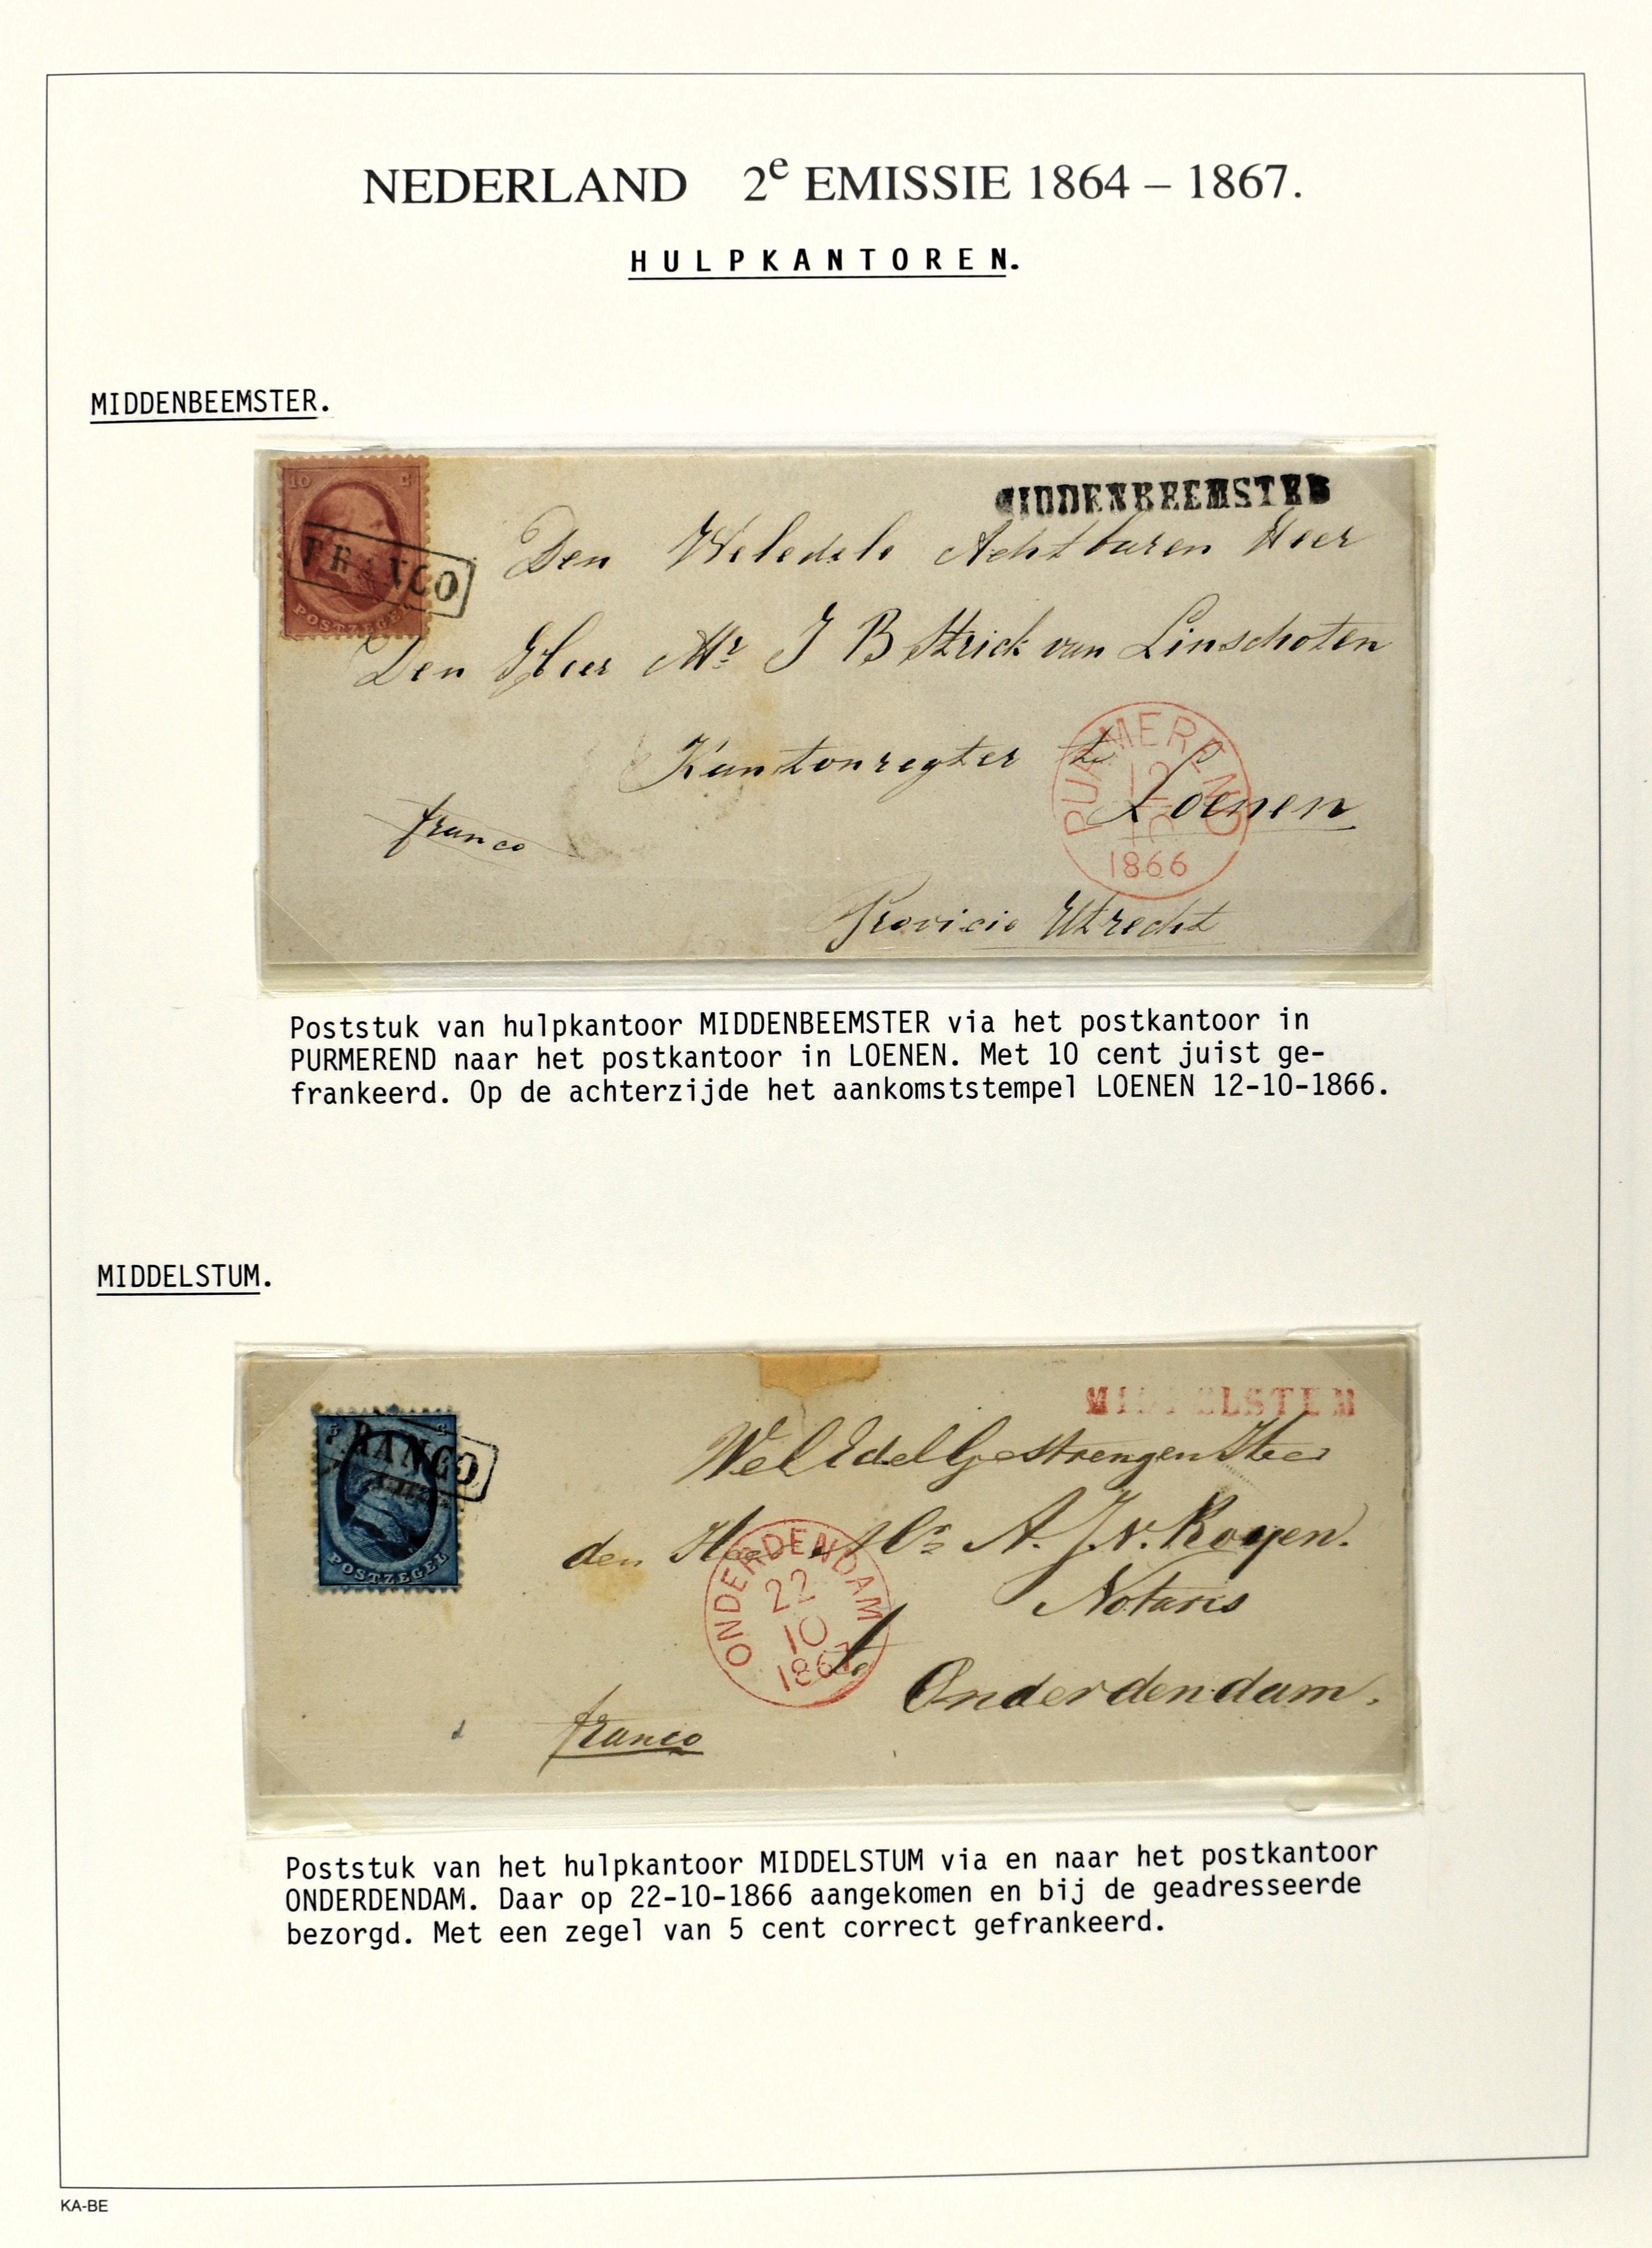 NEDERLAND 2e EMISSIE 1864 – 1867.
HULPKANTOREN.
MIDDENBEEMSTER.
10 C
FRANCO
POSTZEGEL
MIDDENBEEMSTER
Den Weledele Achtbaren Heer
Den Heer Mr J B Strick van Linschoten
Kantonregter te
Loenen
franco
PURMEREND
12
1866
Provicie Utrecht
Poststuk van hulpkantoor MIDDENBEEMSTER via het postkantoor in
PURMEREND naar het postkantoor in LOENEN. Met 10 cent juist ge-
frankeerd. Op de achterzijde het aankomststempel LOENEN 12-10-1866.
MIDDELSTUM.
5 C
FRANCO
POSTZEGEL
MIDDELSTUM
WelEdelGestrengen Heer
den Heer Mr A. J. v. Royen.
Notaris
te Onderdendam.
ONDERDENDAM
22
10
1867
franco
Poststuk van het hulpkantoor MIDDELSTUM via en naar het postkantoor
ONDERDENDAM. Daar op 22-10-1866 aangekomen en bij de geadresseerde
bezorgd. Met een zegel van 5 cent correct gefrankeerd.
KA-BE